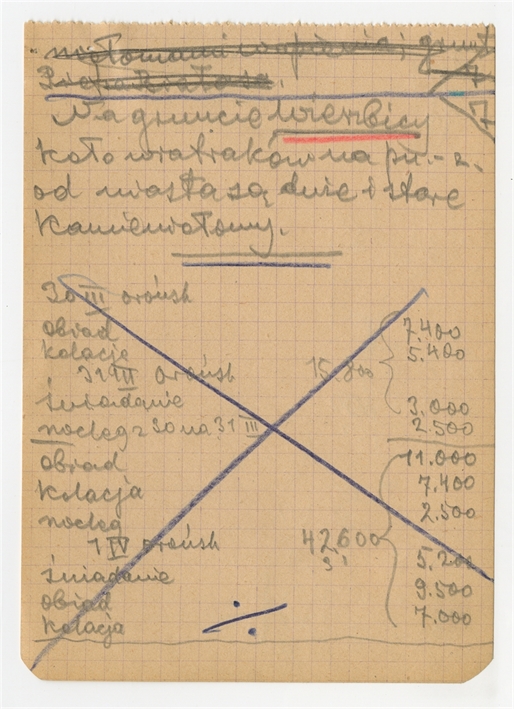 7
Na gruncie Wierzbicy
koło wiatraków na pn.-z.
od miasta są duże i stare
kamieniołomy.
30 III Orońsk
obiad 7.400
kolacja 5.400
31 III Orońsk 15.800
śniadanie 3.000
nocleg z 30 na 31 III 2.500
obiad 11.000
kolacja 7.400
nocleg 2.500
1 IV Orońsk 42.600
śniadanie 5.200
obiad 9.500
kolacja 7.000